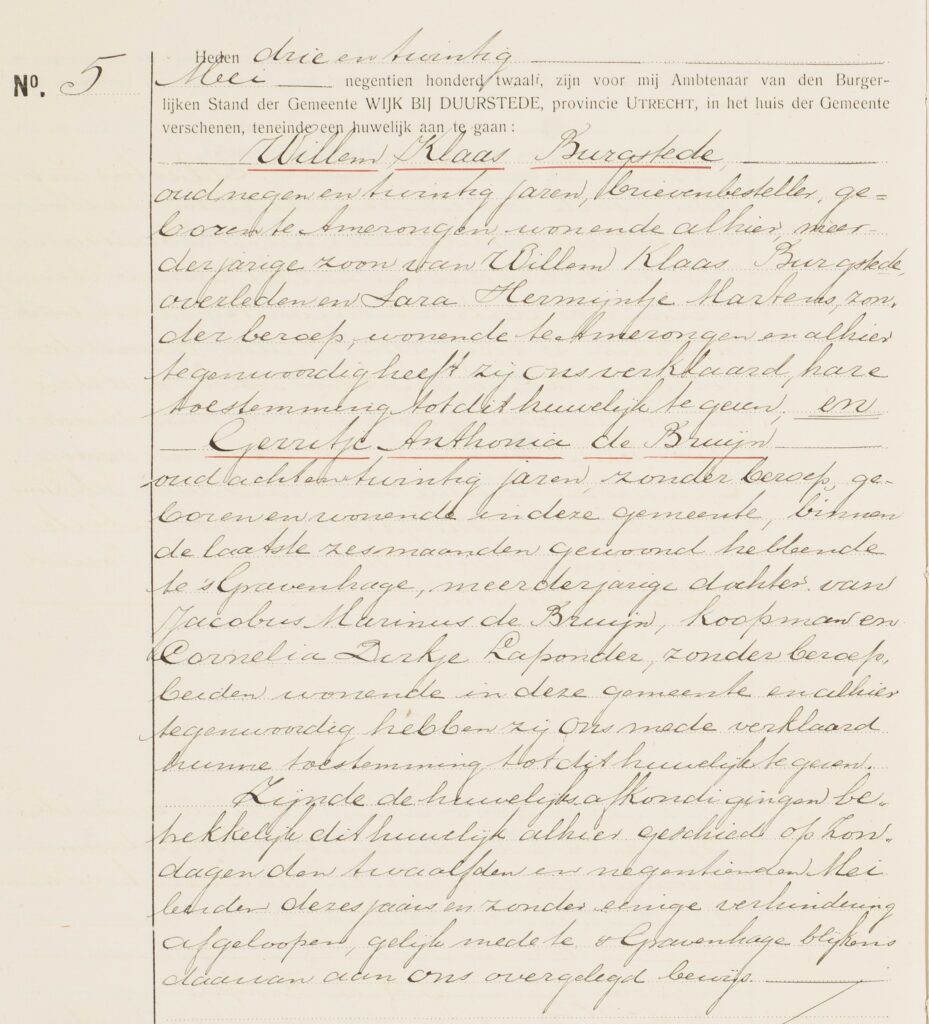 Nº. 5
Heden drie en twintig
Mei negentien honderd twaalf, zijn voor mij Ambtenaar van den Burger-
lijken Stand der Gemeente WIJK BIJ DUURSTEDE, provincie UTRECHT, in het huis der Gemeente
verschenen, teneinde een huwelijk aan te gaan:
Willem Klaas Burgstede,
oud negen en twintig jaren, brievenbesteller, ge=
boren te Amerongen, wonende alhier, meer-
derjarige zoon van Willem Klaas Burgstede,
overleden en Sara Hermijntje Martens, zon-
der beroep, wonende te Amerongen en alhier
tegenwoordig heeft zij ons verklaard, hare
toestemming tot dit huwelijk te geven, en
Gerritje Anthonia de Bruijn
oud acht en twintig jaren, zonder beroep, ge-
boren en wonende in deze gemeente, binnen
de laatste zes maanden gewoond hebbende
te 's Gravenhage, meerderjarige dochter van
Jacobus Marinus de Bruijn, koopman en
Cornelia Dirkje Laponder, zonder beroep,
beiden wonende in deze gemeente en alhier
tegenwoordig hebben zij ons mede verklaard
hunne toestemming tot dit huwelijk te geven.
Zijnde de huwelijksafkondigingen be-
trekkelijk dit huwelijk alhier geschied op Zon-
dagen den twaalfden en negentienden Mei
beiden dezes jaars en zonder eenige verhindering
afgeloopen, gelijk mede te 's Gravenhage blijkens
daarvan aan ons overgelegd bewijs.